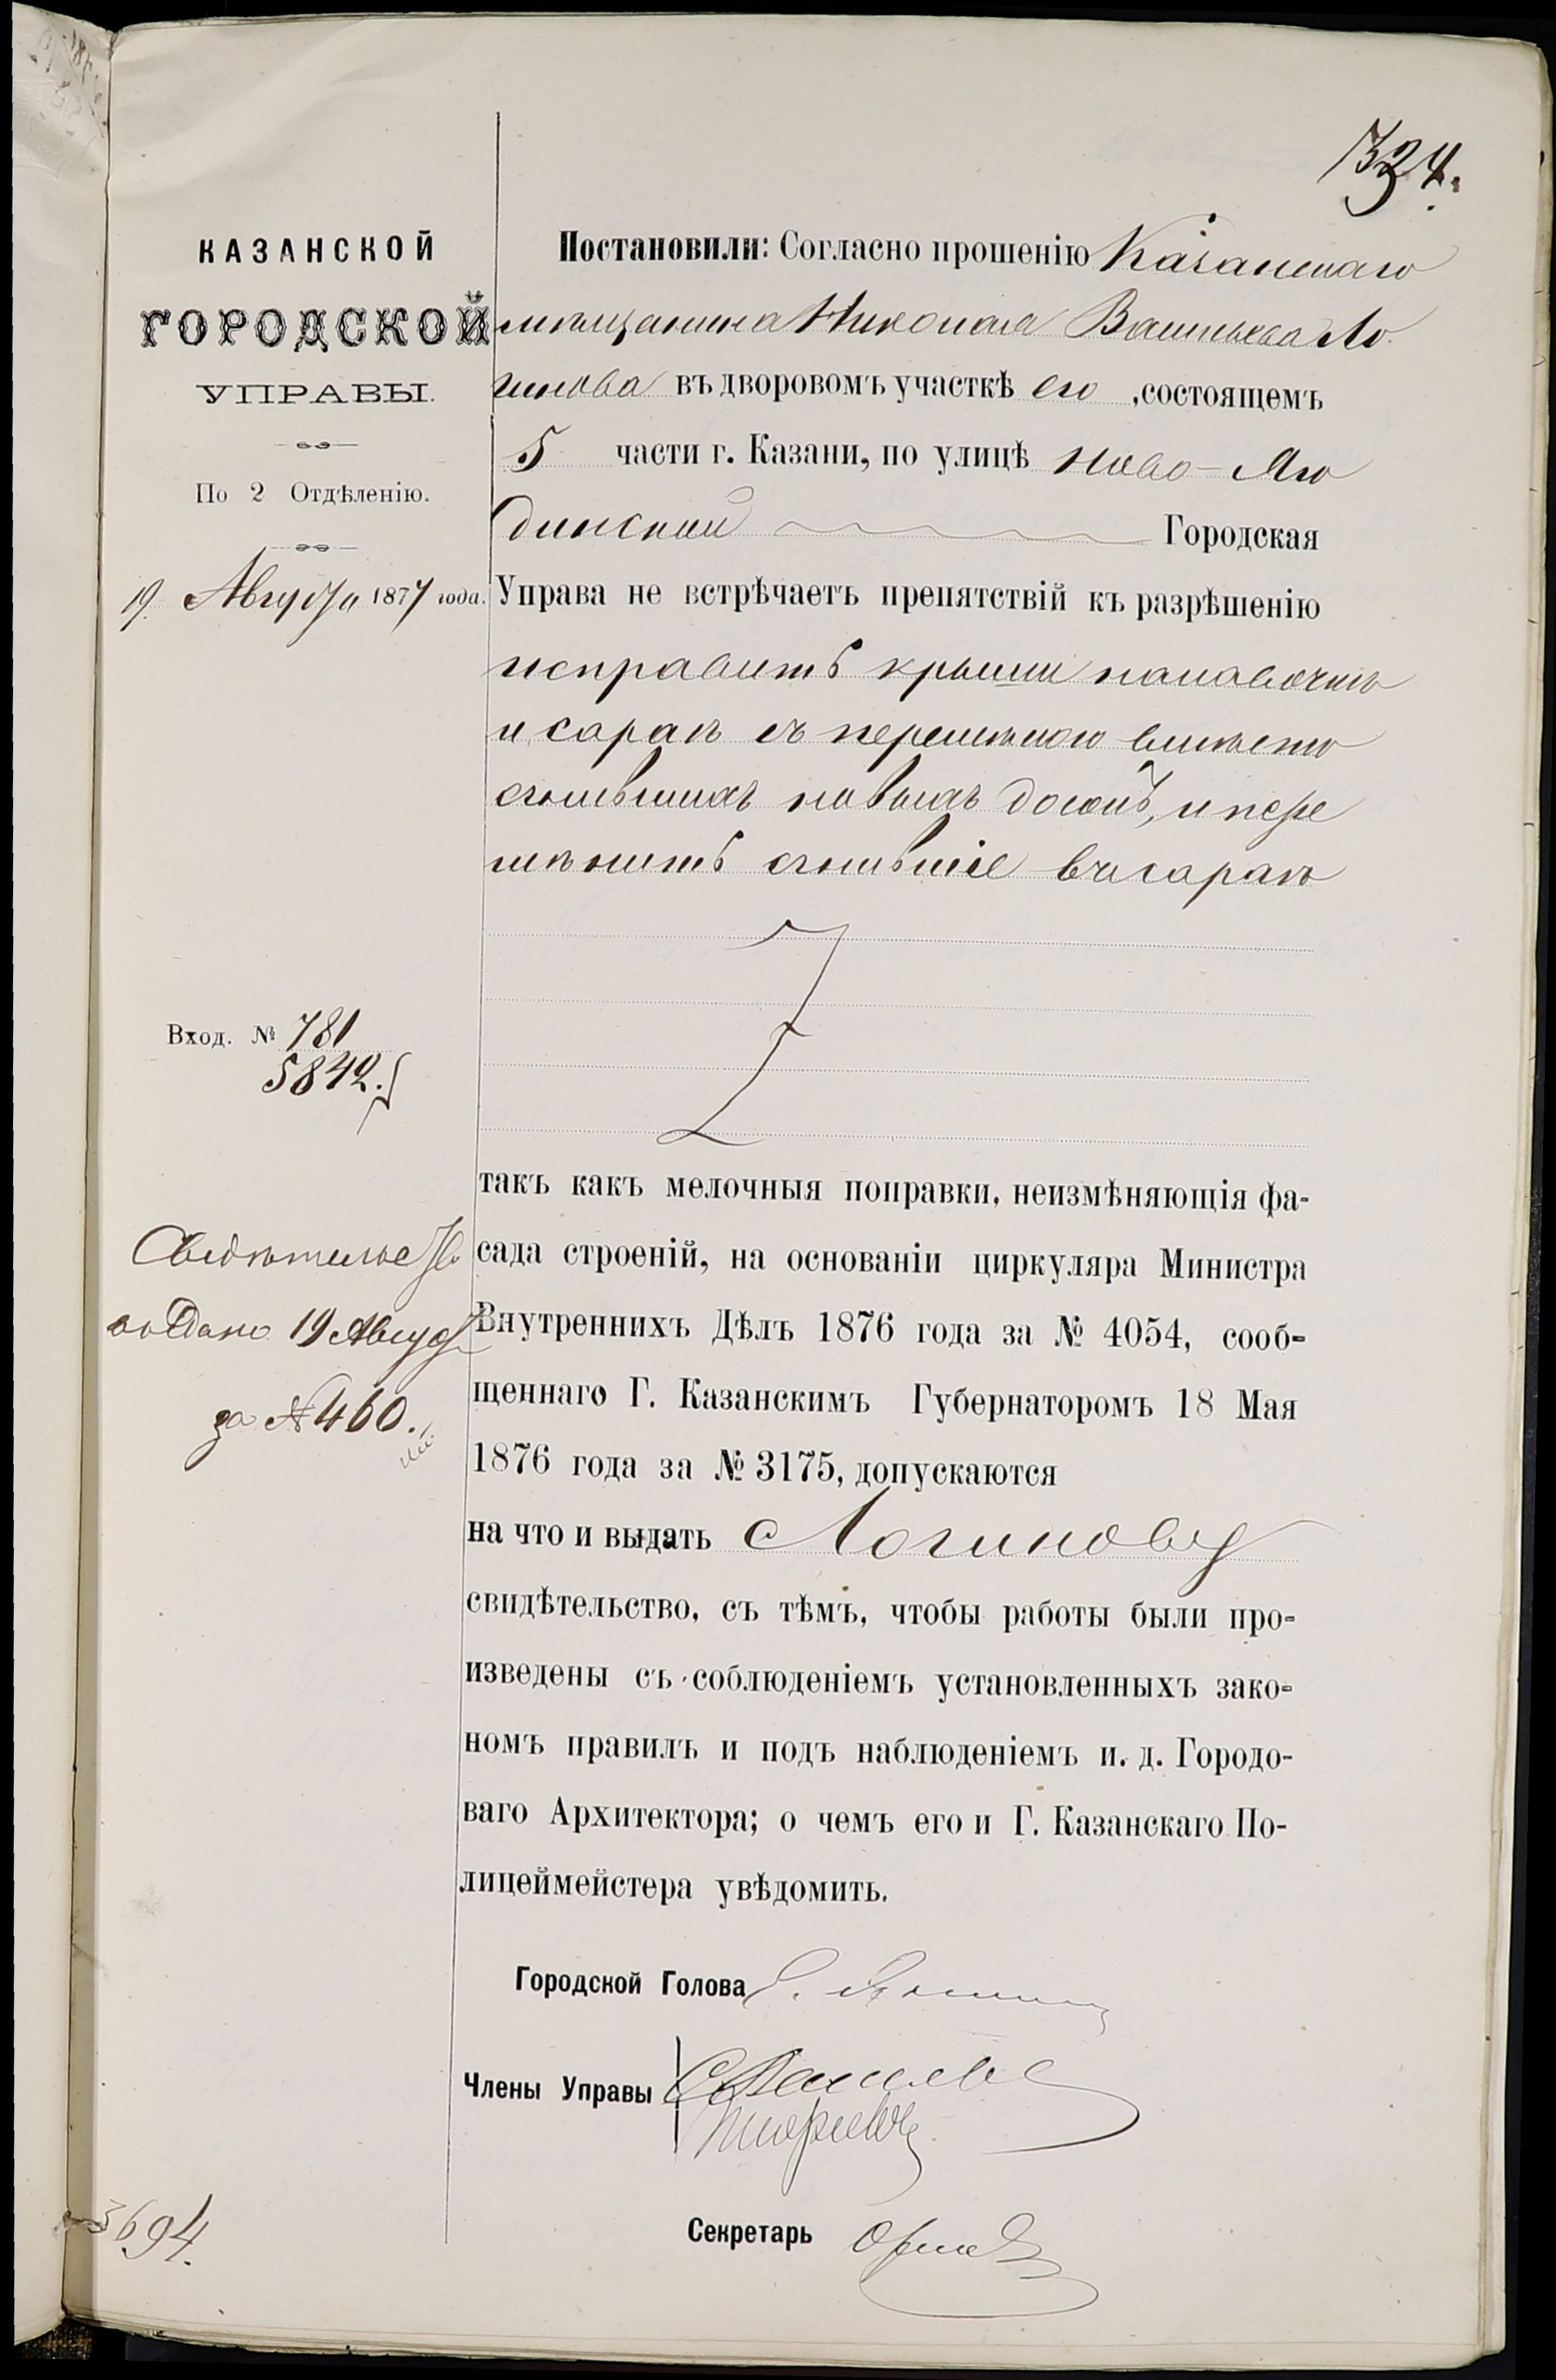 324.
КАЗАНСКОЙ
ГОРОДСКОЙ
УПРАВЫ.
По 2 Отдѣленію.
19 Августа 1877 года.
Вход. № 781
5842.
Свидѣтельство
выдано 19 Август
за № 460.
Постановили: Согласно прошенію Казанскаго
мѣщанина Николая Васильева Ло
гинова въ дворовомъ участкѣ его, состоящемъ
5 части г. Казани, по улицѣ Ново-Яго
динской Городская
Управа не встрѣчаетъ препятствій къ разрѣшенію
исправить крыши на
и сараѣ съ перемѣною вмѣсто
сгнившихъ новыхъ досокъ, и пере
мѣнить сгнившіе въ сараѣ
такъ какъ мелочныя поправки, неизмѣняющія фа-
сада строеній, на основаніи циркуляра Министра
Внутреннихъ Дѣлъ 1876 года за № 4054, сооб-
щеннаго Г. Казанскимъ Губернаторомъ 18 Мая
1876 года за № 3175, допускаются
на что и выдать Логинову
свидѣтельство, съ тѣмъ, чтобы работы были про-
изведены съ соблюденіемъ установленныхъ зако-
номъ правилъ и подъ наблюденіемъ и. д. Городо-
ваго Архитектора; о чемъ его и Г. Казанскаго По-
лицеймейстера увѣдомить.
Городской Голова
Члены Управы
Секретарь
3694.